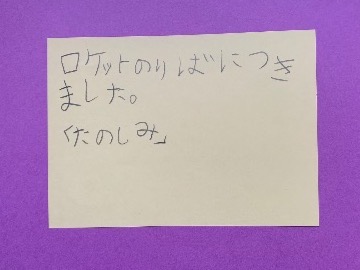 ロケットのりばにつき
ました。
「たのしみ」